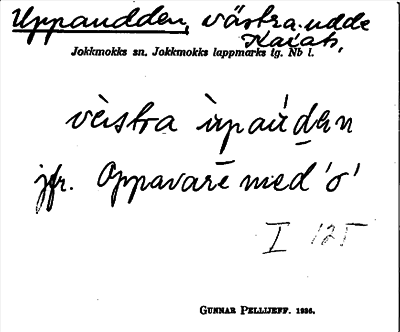 Uppaudden, västra. udde
Kaiats,
Jokkmokks sn. Jokkmokks lappmarks tg. Nb l.
västra ùpaùden
jfr. Oppavarē med 'o'
I 125
Gunnar Pellijeff. 1936.